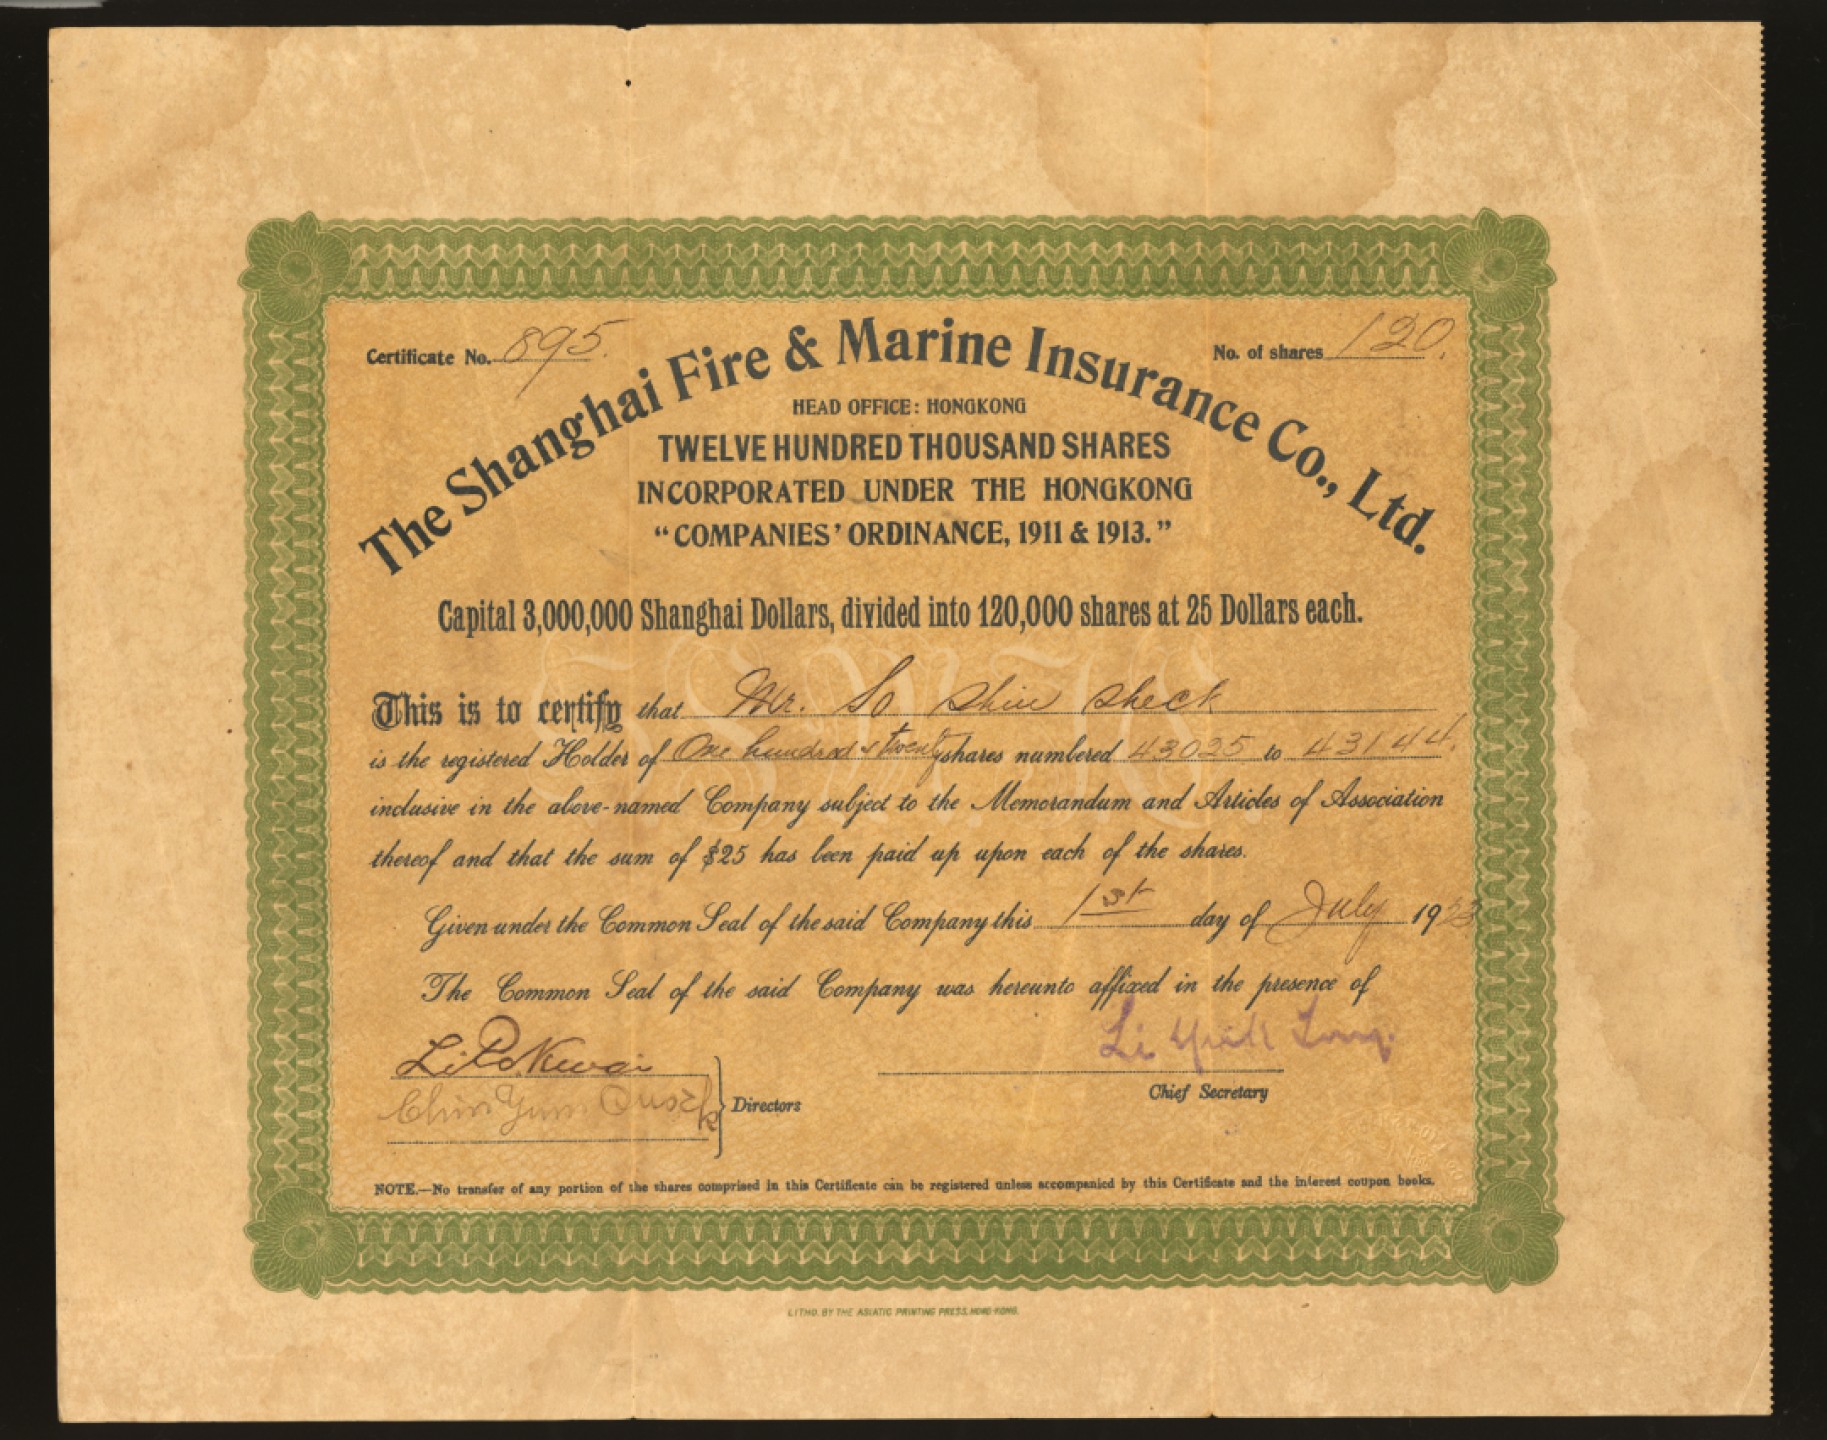 Certificate No. 895.
No. of shares 120.
The Shanghai Fire & Marine Insurance Co., Ltd.
HEAD OFFICE: HONGKONG
TWELVE HUNDRED THOUSAND SHARES
INCORPORATED UNDER THE HONGKONG
“COMPANIES’ ORDINANCE, 1911 & 1913.”
Capital 3,000,000 Shanghai Dollars, divided into 120,000 shares at 25 Dollars each.
This is to certify that Mr. So Shiu Sheck
is the registered Holder of One hundred & twenty shares numbered 43025 to 43144.
inclusive in the above-named Company subject to the Memorandum and Articles of Association
thereof and that the sum of $25 has been paid up upon each of the shares.
Given under the Common Seal of the said Company this 1st day of July 1923
The Common Seal of the said Company was hereunto affixed in the presence of
Li Po Kwai
Li
Chief Secretary
Directors
NOTE.—No transfer of any portion of the shares comprised in this Certificate can be registered unless accompanied by this Certificate and the interest coupon books.
LITHO. BY THE ASIATIC PRINTING PRESS, HONG KONG.